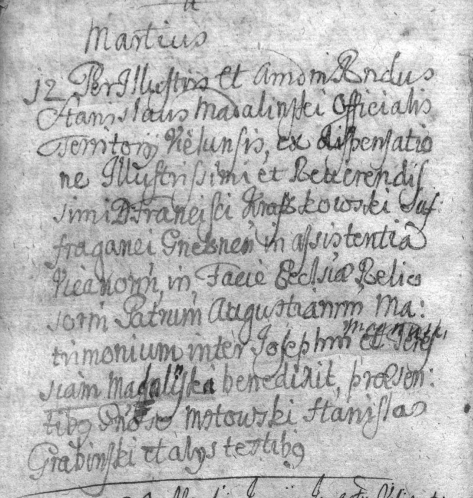 Martius
12 PerIllustris et Admom Rndus
Stanislaus Madalinski Officialis
Territorij Vielunsis, ex dispensatio
ne Illustrissimi et Reverendis
simi D Francisci Kraszkowski Suf
fraganei Gnesnen in assistentia
Vicariorum, in Facie Ecclsiæ Relig
iosorm Patrum Augustianorm Ma:
trimonium inter Josephm et Teres
siam Madaliska benedixit, præsen:
tibg Dno Motowski Stanislao
Grabinski et alys testibg